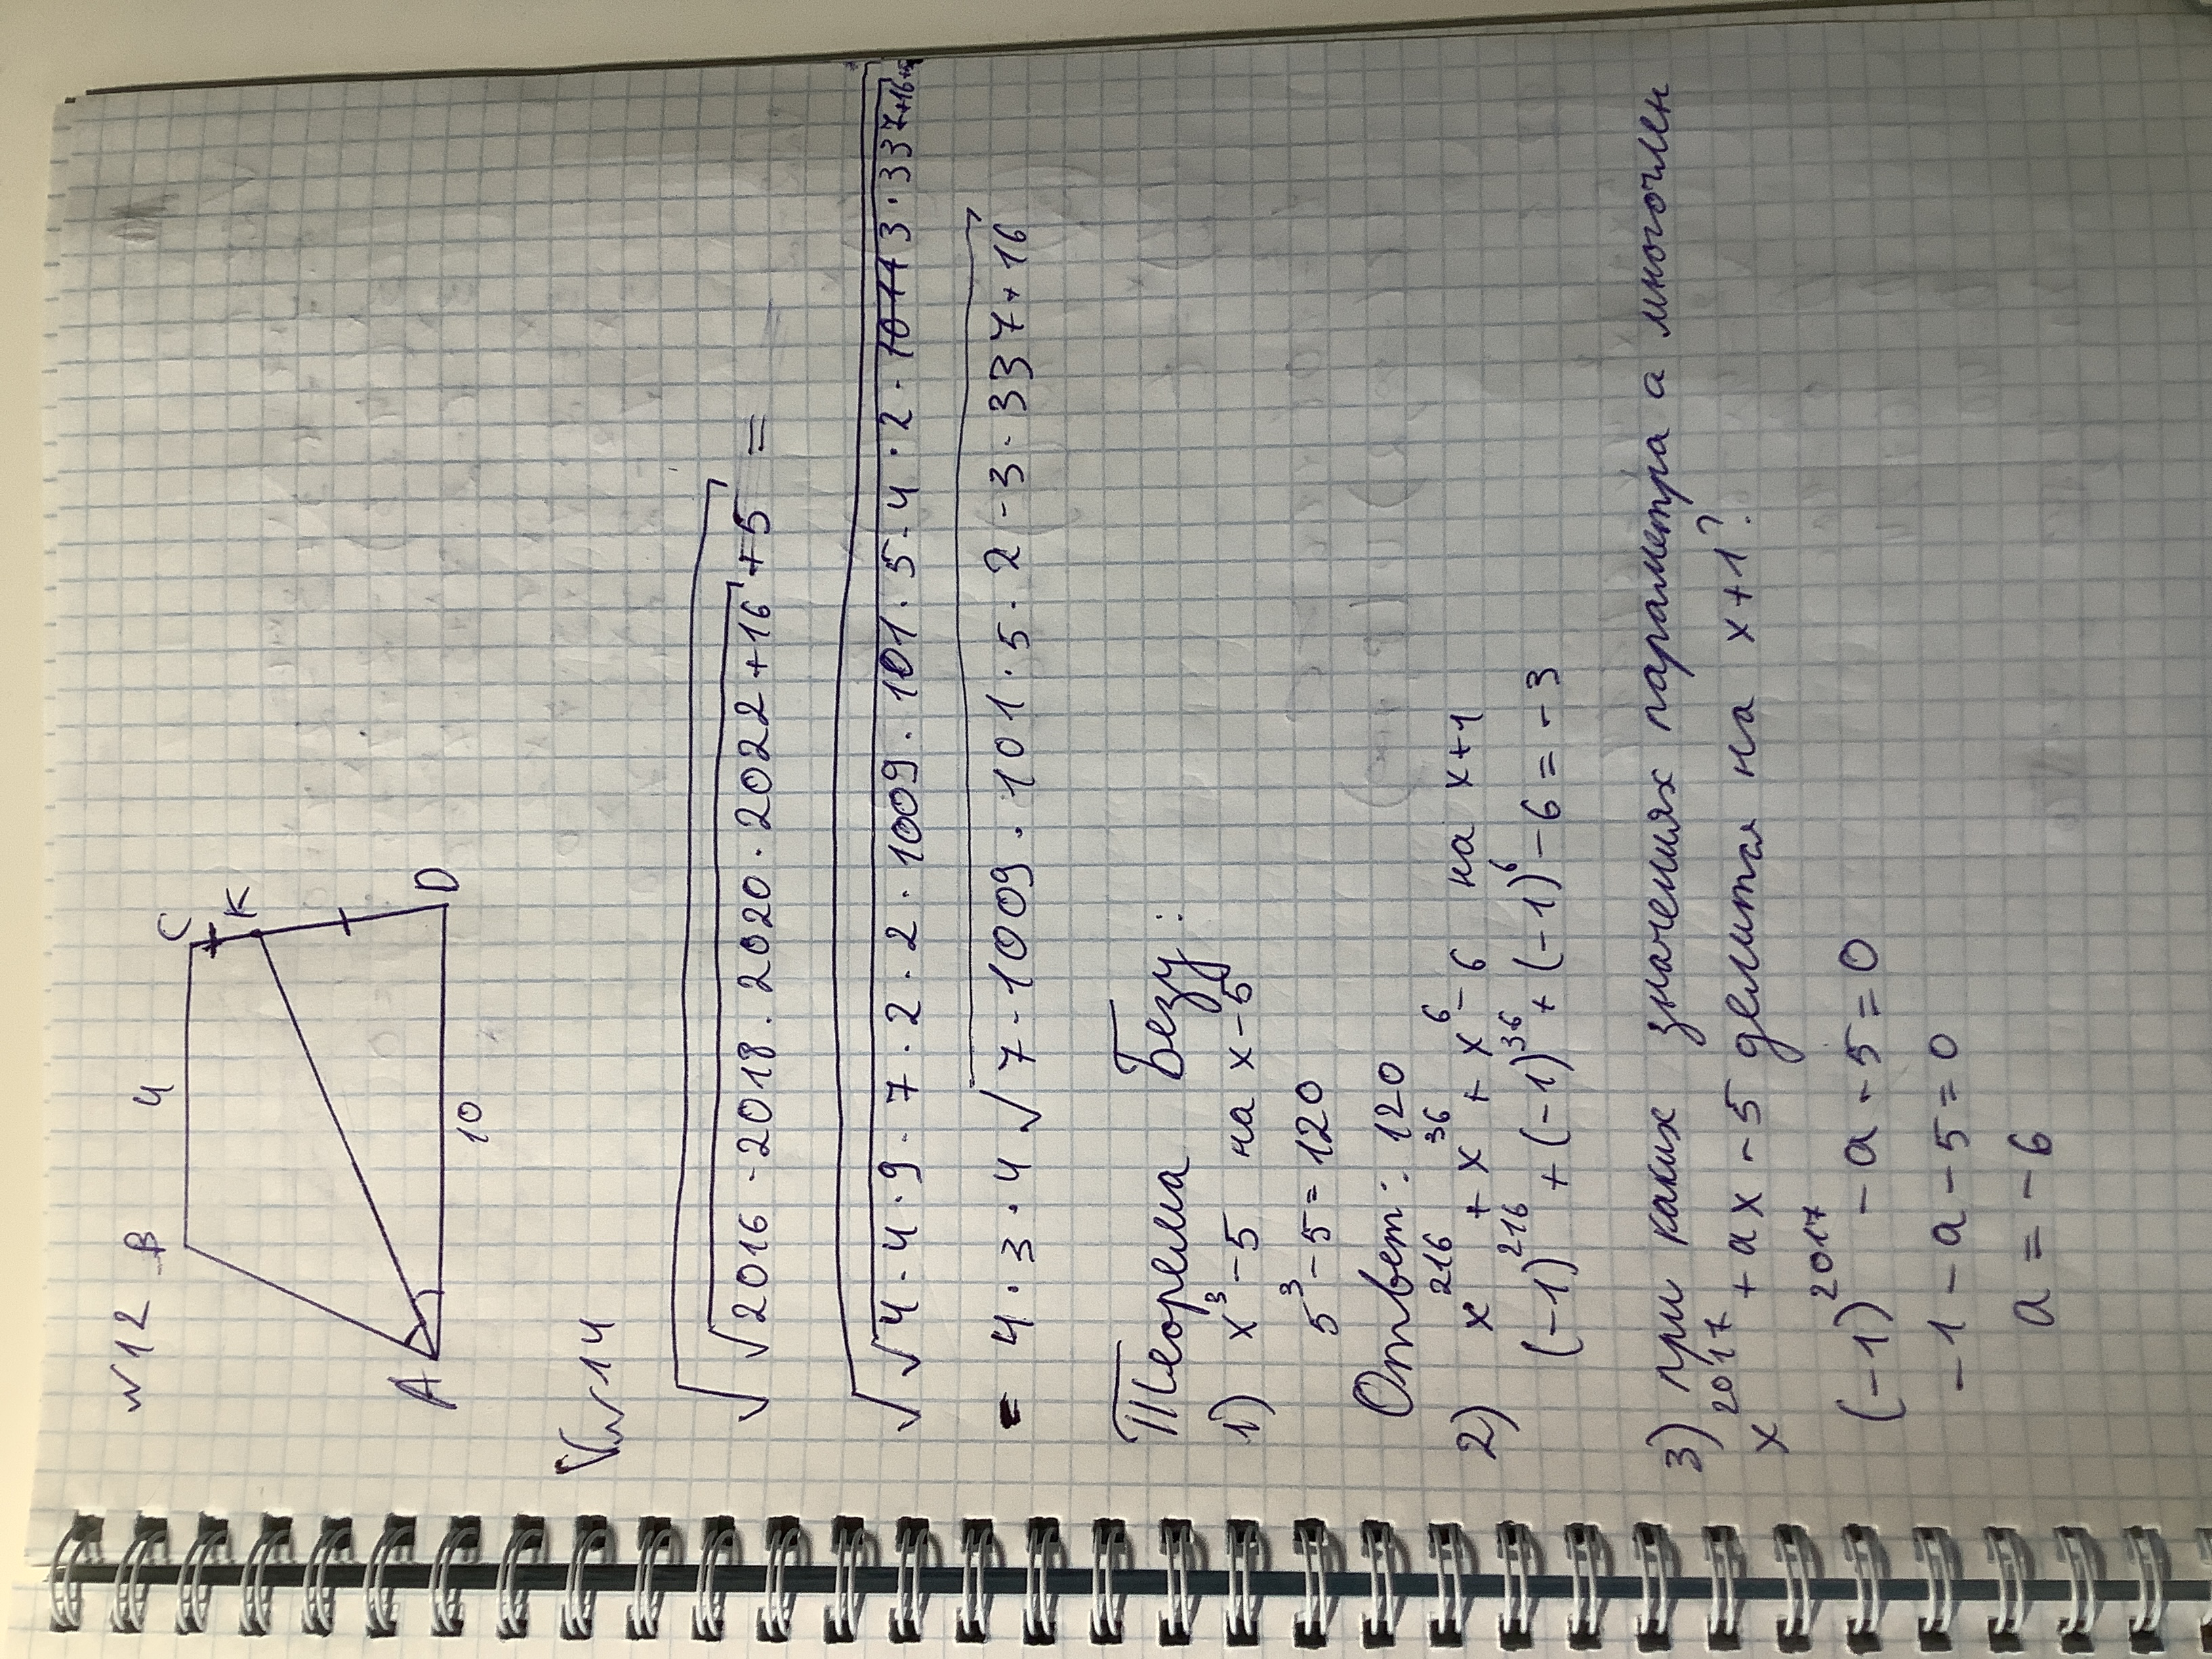 №12
B 4 C
K
A D
10
V№14
√(√(2016·2018·2020·2022+16)+5) =
√(√(4·4·9·7·2·2·1009·101·5·4·2·1011 3·337+16)+5)
= 4·3·4√(7·1009·101·5·2·3·337+16)
Теорема Безу:
1) x³-5 на x-5
5³-5=120
Ответ: 120
2) x²¹⁶+x³⁶+x⁶-6 на x+1
(-1)²¹⁶+(-1)³⁶+(-1)⁶-6=-3
3) при каких значениях параметра а многочлен
x²⁰¹⁷+ax-5 делится на x+1?
(-1)²⁰¹⁷-a-5=0
-1-a-5=0
a=-6